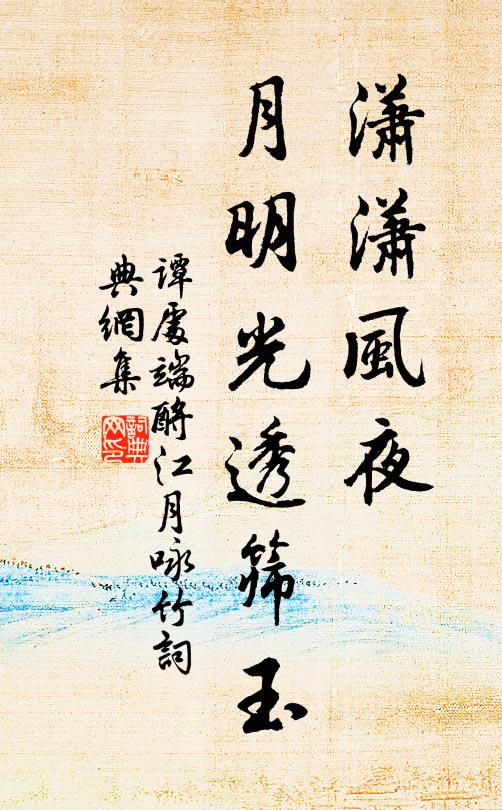 瀟瀟風夜
月明光透篩玉
譚處端酹江月咏竹詞
典網集
詞典网印